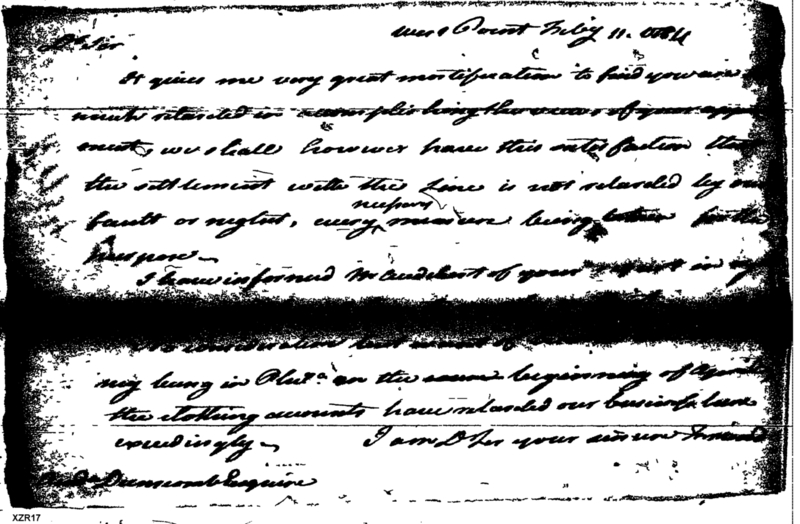 West Point Feby 11. 1784
Dr Sir
It gives me very great mortification to find you are so
much retarded in accomplishing the views of your appoint
ment, we shall however have this satisfaction that
the settlement with the Line is not retarded by our
necessary
fault or neglect, every measure being taken for the
purpose
I have informed Mr Audebert of your request in
consideration
my being in Phila on the beginning of April
the clothing accounts have retarded our business here
exceedingly I am Dr Sir your sincere Friend
Dunscomb Esquire
XZR17